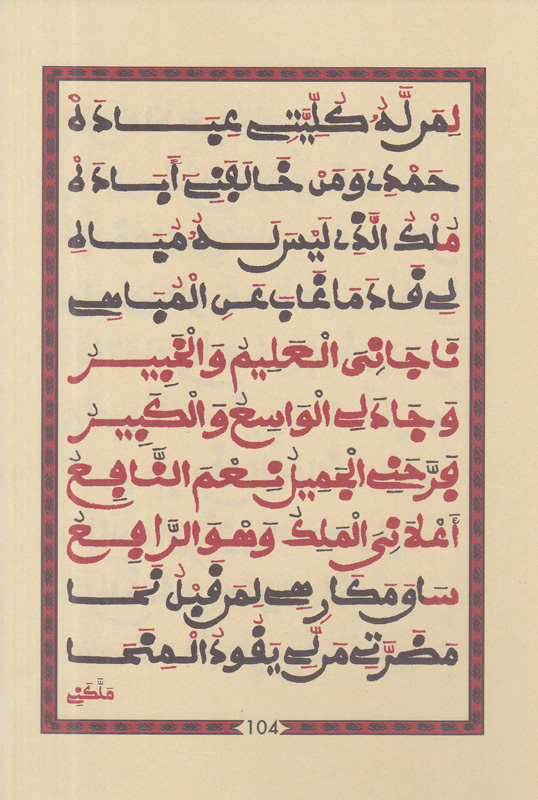 لِمَن لَّهُ كُلِّيَّتِي عِبَادَهْ
حَمْدِي وَمَنْ خَالَفَنِي أَبَادَهْ
مُلْكُ الَّذِي لَيْسَ لَهُ مُبَاهِ
لِي قَادَ مَا غَابَ عَنِ الْمُبَاهِي
نَاجَانِيَ الْعَلِيمُ وَالْخَبِيرُ
وَجَادَ لِي الْوَاسِعُ وَالْكَبِيرُ
فَرَّحَنِي الْجَمِيلُ نِعْمَ النَّافِعُ
أَعْلَانِيَ الْمَلِكُ وَهْوَ الرَّافِعُ
سَاقَ مَكَارِهِي لِمَن قَبْلُ نَحَا
مَضَرَّتِي مَن لِّي يَقُودُ الْمِنَحَا
مَلَّكَنِي
104